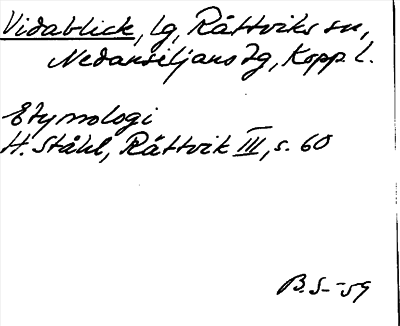 Vidablick, lg, Rättviks sn,
Nedansiljans tg, Kopp. l.
Etymologi
H. Ståhl, Rättvik III, s. 60
B.S. -59